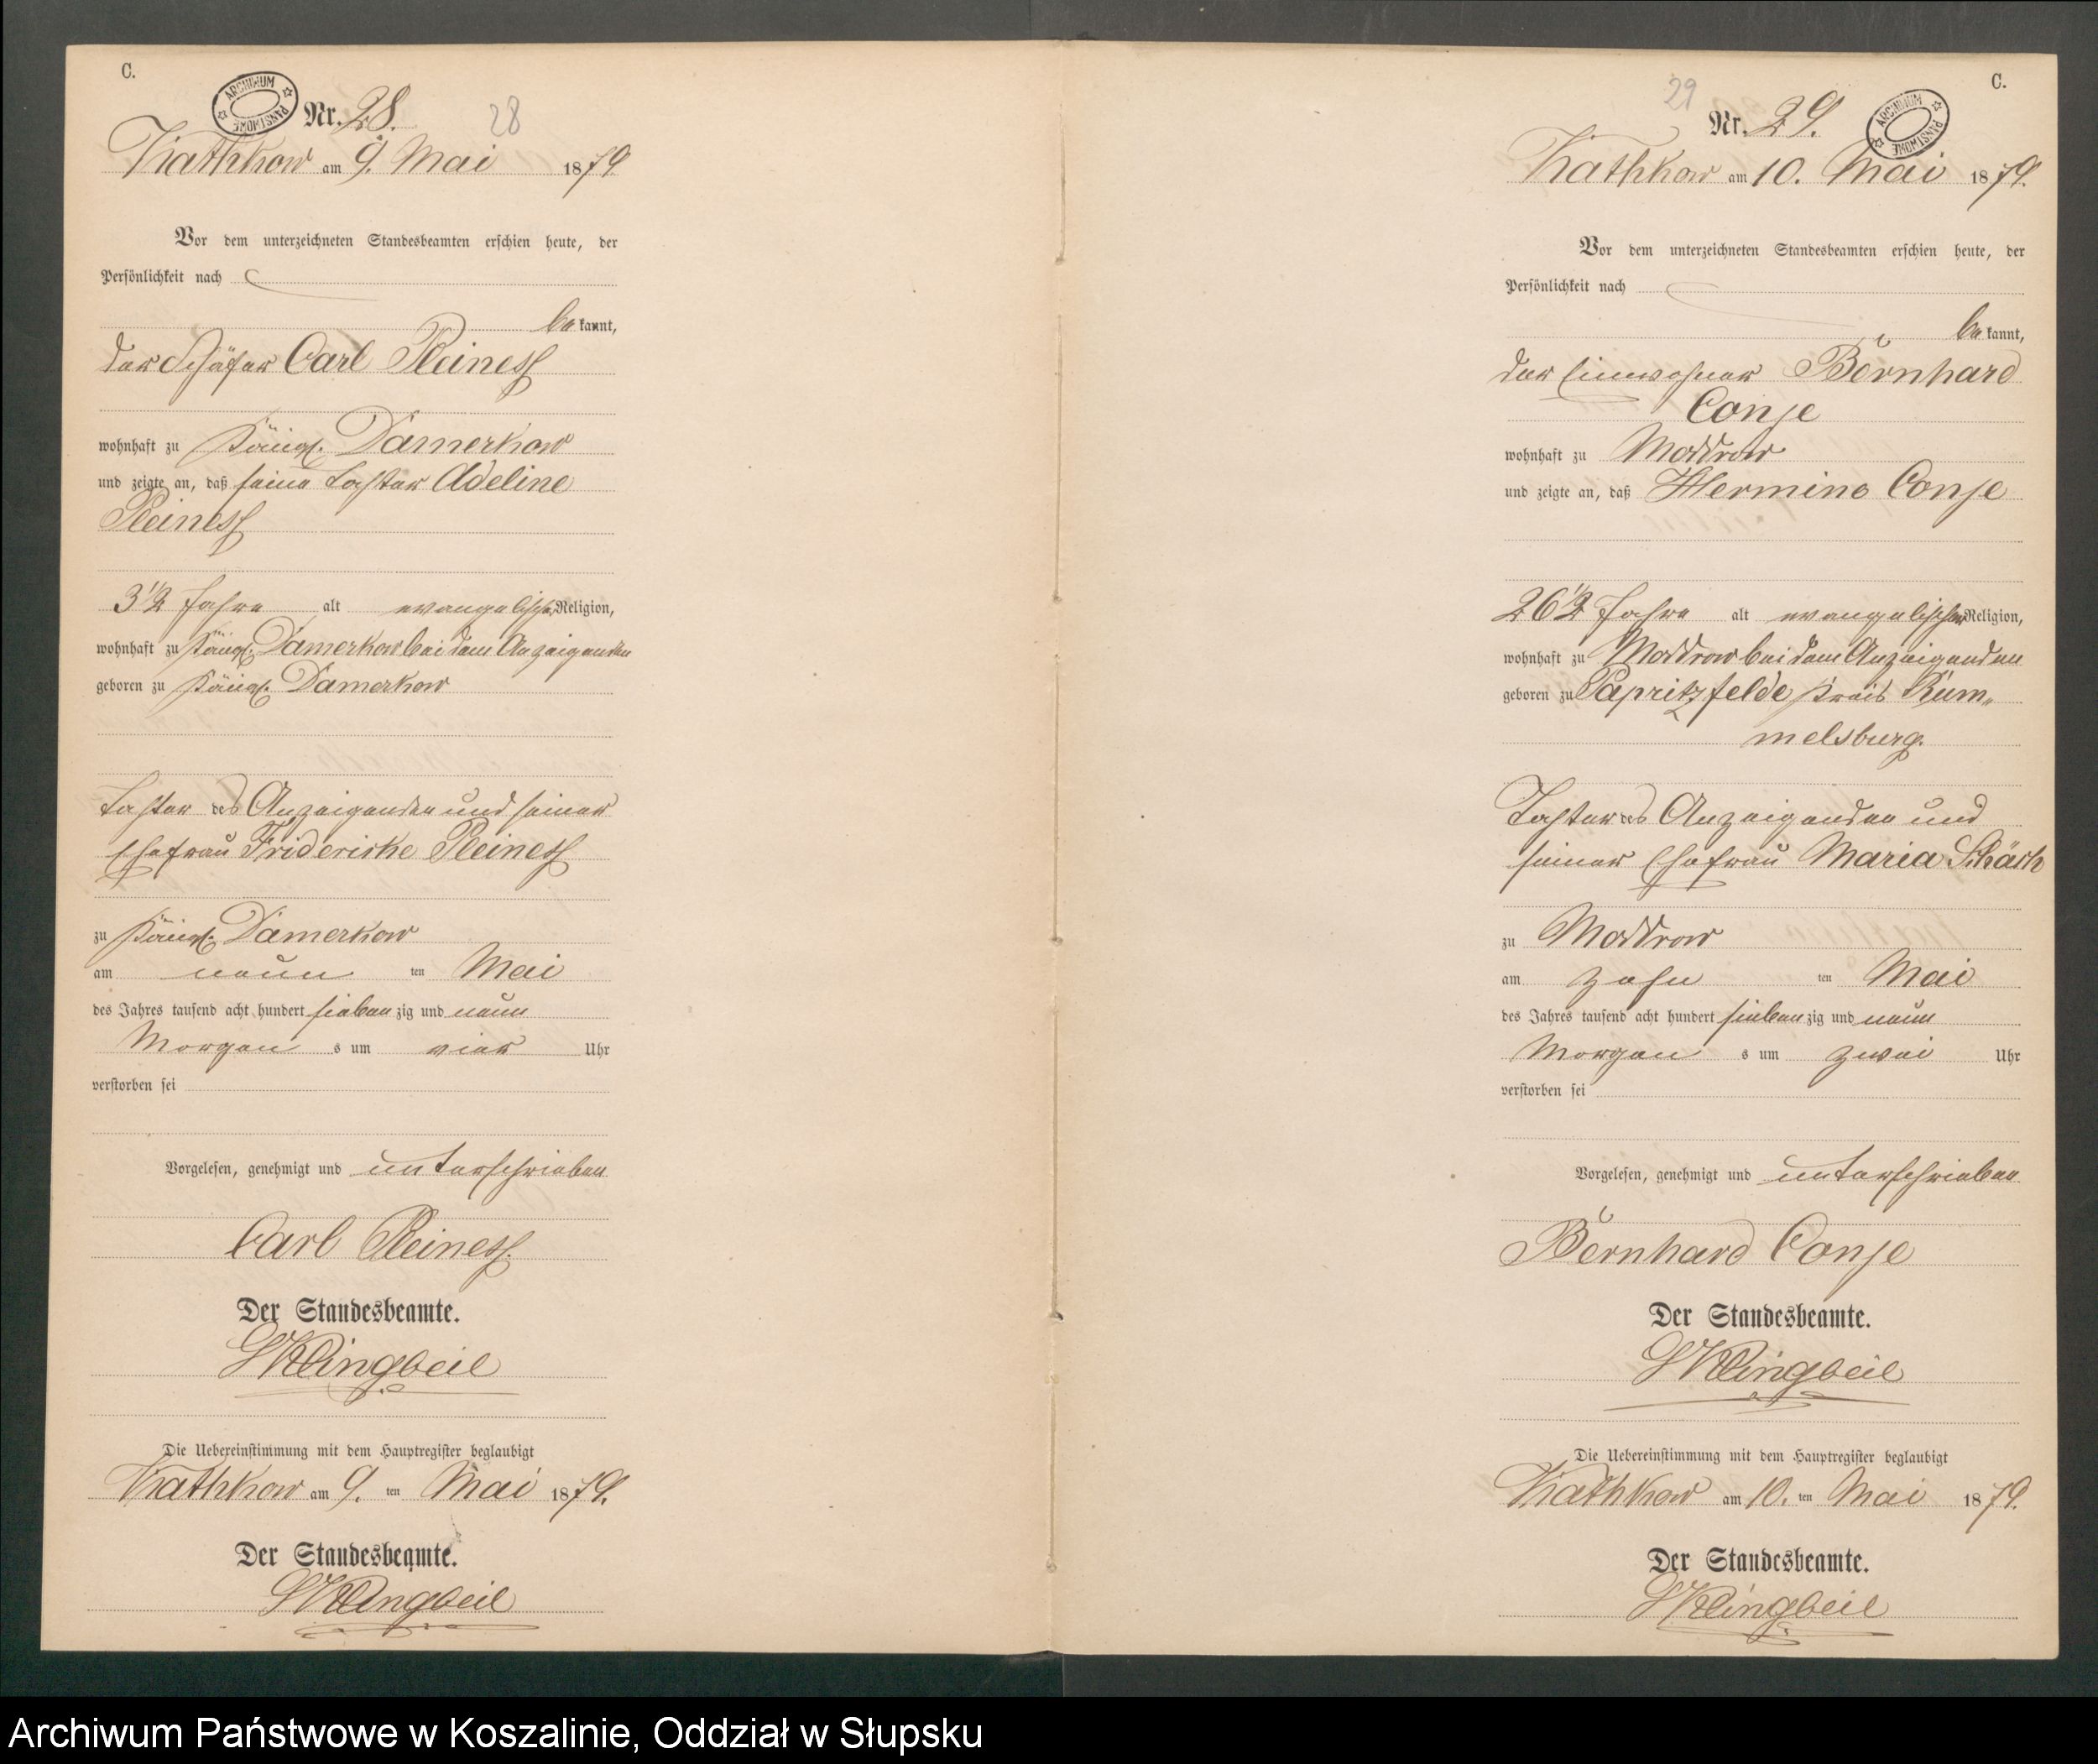 C.
ARCHIWUM PAŃSTWOWE
Nr. 28. 28
Kathkow am 9. Mai 1879
Vor dem unterzeichneten Standesbeamten erschien heute, der
Persönlichkeit nach
bekannt,
der Schäfer Carl Reiness
wohnhaft zu Königl. Damerkow
und zeigte an, daß seine Tochter Adeline
Reiness
3 1/2 Jahre alt evangelischer Religion,
wohnhaft zu Königl. Damerkow bei dem Anzeigenden
geboren zu Königl. Damerkow
Tochter des Anzeigenden und seiner
Ehefrau Friderike Reiness
zu Königl. Damerkow
am neun ten Mai
des Jahres tausend acht hundert siebenzig und neun
Morgens um vier Uhr
verstorben sei
Vorgelesen, genehmigt und unterschrieben
Carl Reiness.
Der Standesbeamte.
Klingbeil
Die Uebereinstimmung mit dem Hauptregister beglaubigt
Kathkow am 9. ten Mai 1879.
Der Standesbeamte.
Klingbeil
C.
29
Nr. 29.
ARCHIWUM PAŃSTWOWE
Kathkow am 10. Mai 1879.
Vor dem unterzeichneten Standesbeamten erschien heute, der
Persönlichkeit nach
bekannt,
der Einwohner Bernhard
Conje
wohnhaft zu Moddrow
und zeigte an, daß Hermine Conje
26 1/2 Jahre alt evangelischer Religion,
wohnhaft zu Moddrow bei dem Anzeigenden
geboren zu Papritzfelde Kreis Rum-
melsburg.
Tochter des Anzeigenden und
seiner Ehefrau Maria
zu Moddrow
am zehn ten Mai
des Jahres tausend acht hundert siebenzig und neun
Morgens um zwei Uhr
verstorben sei
Vorgelesen, genehmigt und unterschrieben
Bernhard Conje
Der Standesbeamte.
Klingbeil
Die Uebereinstimmung mit dem Hauptregister beglaubigt
Kathkow am 10. ten Mai 1879.
Der Standesbeamte.
Klingbeil
Archiwum Państwowe w Koszalinie, Oddział w Słupsku